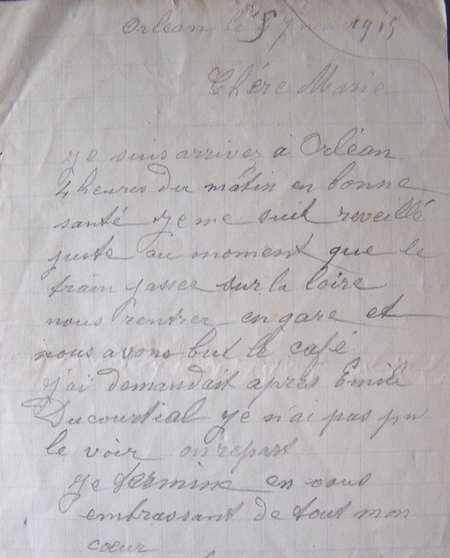 Orlean le 5 Juin 1915
Chére Marie
je suis arrivez à Orléan
4 heures du mâtin en bonne
santé je me suit reveillé
juste au moment que le
train passer sur la loire
nous rentrer en gare et
nous avons but le café
j'ai demandait apres Emile
Ducourtial je n'ai pas pu
le voir on repart
je termine en vous
embrassant de tout mon
coeur